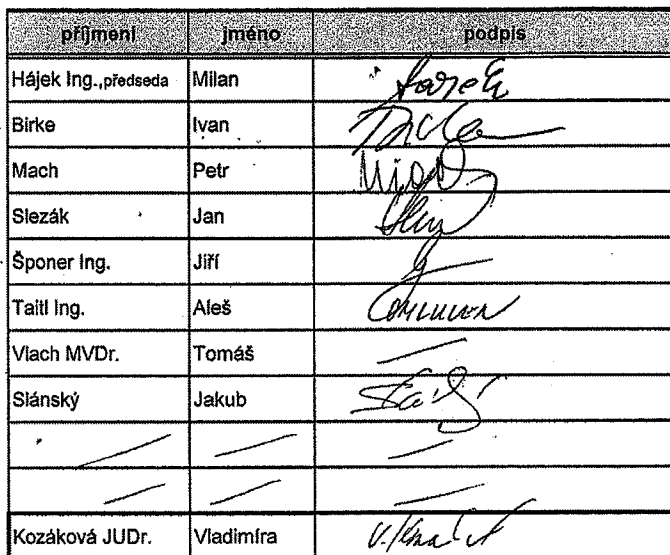 příjmení jméno podpis
Hájek Ing.,předseda Milan
Birke Ivan
Mach Petr
Slezák Jan
Šponer Ing. Jiří
Taitl Ing. Aleš
Vlach MVDr. Tomáš
Slánský Jakub
Kozáková JUDr. Vladimíra